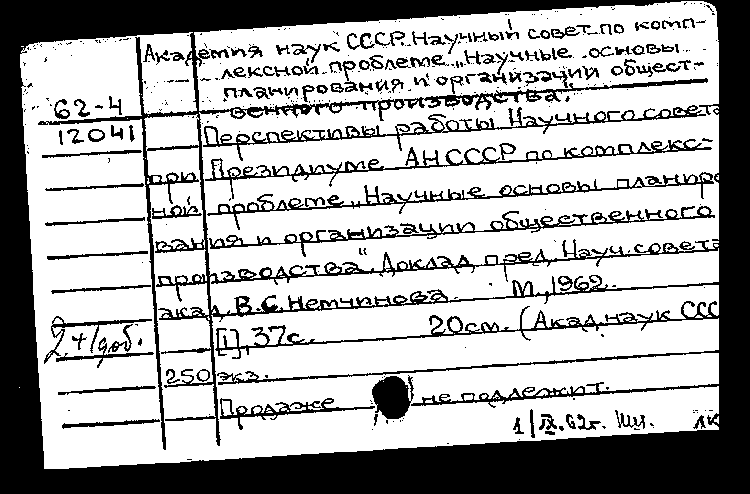 Академия наук СССР. Научный совет по комп-
лексной проблеме „Научные основы
планирования и организации общест-
62-4 венного производства".
12041 Перспективы работы Научного совета
при Президиуме АН СССР по комплекс-
ной проблеме „Научные основы планиро
вания и организации общественного
производства". Доклад пред. Науч. совета
акад. В.С. Немчинова. М., 1962.
2+1доб. [1], 37с. 20см. (Акад. наук ССС
250 экз.
Продаже не подлежит.
1/IX.62г. ЛК